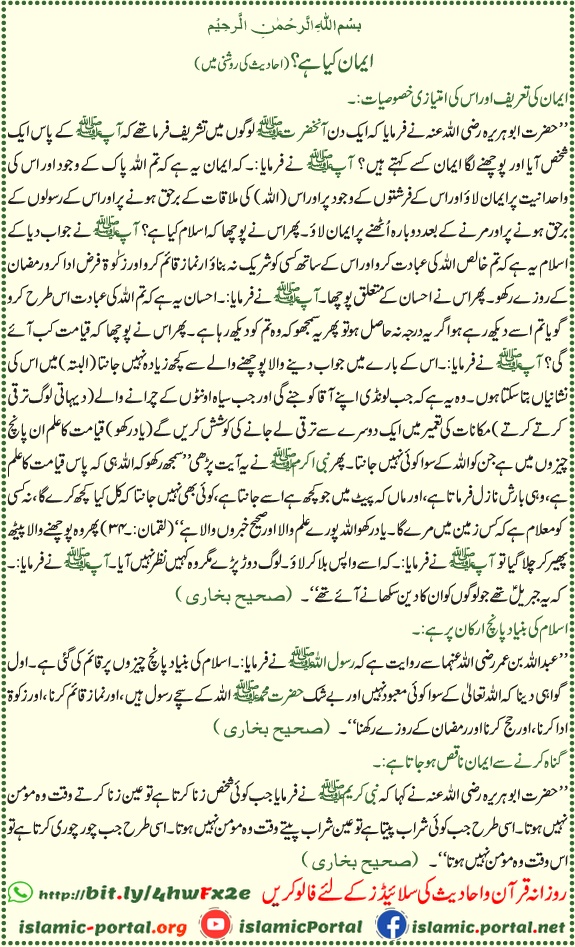 بسم الله الرحمن الرحیم
ایمان کیا ہے؟ (احادیث کی روشنی میں)
ایمان کی تعریف اور اس کی امتیازی خصوصیات:۔
’’حضرت ابو ہریرہ رضی اللہ عنہ نے فرمایا کہ ایک دن آنحضرت ﷺ لوگوں میں تشریف فرما تھے کہ آپ ﷺ کے پاس ایک
شخص آیا اور پوچھنے لگا ایمان کسے کہتے ہیں؟ آپ ﷺ نے فرمایا:۔ کہ ایمان یہ ہے کہ تم اللہ پاک کے وجود اور اس کی
واحدانیت پر ایمان لاؤ اور اس کے فرشتوں کے وجود پر اور اس (اللہ) کی ملاقات کے برحق ہونے پر اور اس کے رسولوں کے
برحق ہونے پر اور مرنے کے بعد دوبارہ اُٹھنے پر ایمان لاؤ۔ پھر اس نے پوچھا کہ اسلام کیا ہے؟ آپ ﷺ نے جواب دیا کے
اسلام یہ ہے کہ تم خالص اللہ کی عبادت کرو اور اس کے ساتھ کسی کو شریک نہ بناؤ اور نماز قائم کرو اور زکوٰۃ فرض ادا کرو اور رمضان
کے روزے رکھو۔ پھر اس نے احسان کے متعلق پوچھا۔ آپ ﷺ نے فرمایا:۔ احسان یہ ہے کہ تم اللہ کی عبادت اس طرح کرو
گویا تم اسے دیکھ رہے ہو اگر یہ درجہ نہ حاصل ہو تو پھر یہ سمجھو کہ وہ تم کو دیکھ رہا ہے۔ پھر اس نے پوچھا کہ قیامت کب آئے
گی؟ آپ ﷺ نے فرمایا:۔ اس کے بارے میں جواب دینے والا پوچھنے والے سے کچھ زیادہ نہیں جانتا (البتہ) میں اس کی
نشانیاں بتا سکتا ہوں۔ وہ یہ ہے کہ جب لونڈی اپنے آقا کو جنے گی اور جب سیاہ اونٹوں کے چرانے والے (دیہاتی لوگ ترقی
کرتے کرتے) مکانات کی تعمیر میں ایک دوسرے سے ترقی لے جانے کی کوشش کریں گے (یاد رکھو) قیامت کا علم ان پانچ
چیزوں میں ہے جن کو اللہ کے سوا کوئی نہیں جانتا۔ پھر نبی اکرم ﷺ نے یہ آیت پڑھی ’’سمجھ رکھو کہ اللہ ہی کہ پاس قیامت کا علم
ہے، وہی بارش نازل فرماتا ہے، اور ماں کہ پیٹ میں جو کچھ ہے اسے جانتا ہے، کوئی بھی نہیں جانتا کہ کل کیا کچھ کرے گا، نہ کسی
کو معلوم ہے کہ کس زمین میں مرے گا۔ یاد رکھو اللہ پورے علم والا اور صحیح خبروں والا ہے‘‘ (لقمان:۔۳۴) پھر وہ پوچھنے والا پیٹھ
پھیر کر چلا گیا تو آپ ﷺ نے فرمایا:۔ کہ اسے واپس بلا کر لاؤ۔ لوگ دوڑ پڑے مگر وہ کہیں نظر نہیں آیا۔ آپ ﷺ نے فرمایا:۔
کہ یہ جبریلؑ تھے جو لوگوں کو ان کا دین سکھانے آئے تھے‘‘۔ (صحیح بخاری)
اسلام کی بنیاد پانچ ارکان پر ہے:۔
’’عبداللہ بن عمر رضی اللہ عنہما سے روایت ہے کہ رسول اللہ ﷺ نے فرمایا:۔ اسلام کی بنیاد پانچ چیزوں پر قائم کی گئی ہے۔ اول
گواہی دینا کہ اللہ تعالیٰ کے سوا کوئی معبود نہیں اور بے شک حضرت محمد ﷺ اللہ کے سچے رسول ہیں، اور نماز قائم کرنا، اور زکوۃ
ادا کرنا، اور حج کرنا اور رمضان کے روزے رکھنا‘‘۔ (صحیح بخاری)
گناہ کرنے سے ایمان ناقص ہو جاتا ہے:۔
’’حضرت ابو ہریرہ رضی اللہ عنہ نے کہا کہ نبی کریم ﷺ نے فرمایا جب کوئی شخص زنا کرتا ہے تو عین زنا کرتے وقت وہ مومن
نہیں ہوتا۔ اسی طرح جب کوئی شراب پیتا ہے تو عین شراب پیتے وقت وہ مومن نہیں ہوتا۔ اسی طرح جب چور چوری کرتا ہے تو
اس وقت وہ مومن نہیں ہوتا‘‘۔ (صحیح بخاری)
روزانہ قرآن و احادیث کی سلائیڈز کے لئے فالو کریں http://bit.ly/4hwFx2e
islamic-portal.org islamicPortal islamic-portal.net